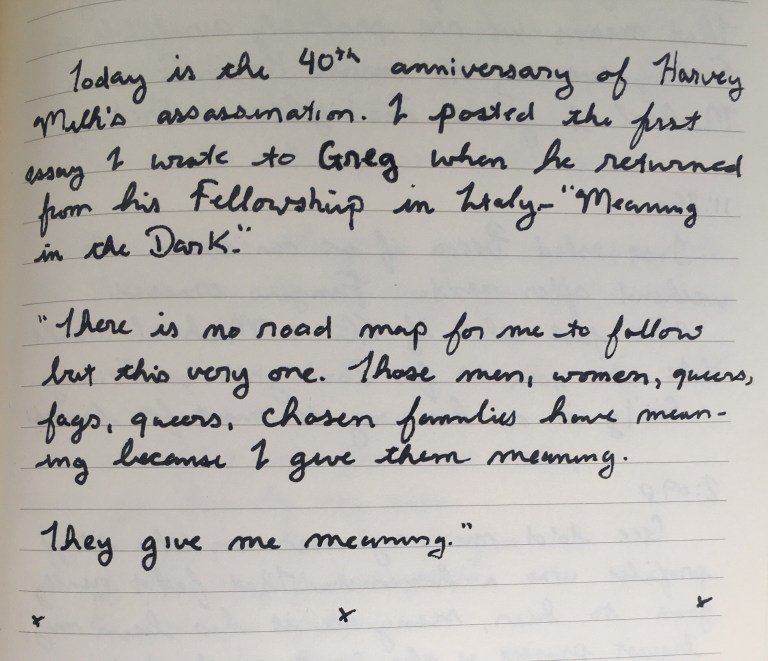 Today is the 40th anniversary of Harvey
Milk's assassination. I posted the first
essay I wrote to Greg when he returned
from his Fellowship in Italy - "Meaning
in the Dark."
"There is no road map for me to follow
but this very one. Those men, women, queers,
fags, queers, chosen families have mean-
ing because I give them meaning.
They give me meaning."
x x x